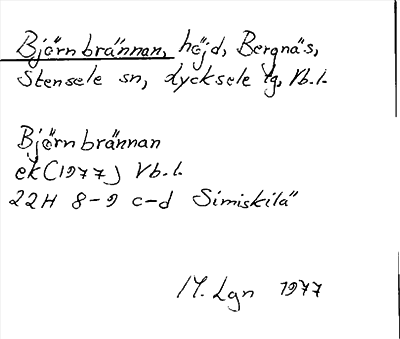 Björnbrännan, höjd, Bergnäs,
Stensele sn, Lycksele lg, Vb.l.
Björnbrännan
ek (1977) Vb.l.
22H 8-9 c-d Simiskilä
M. Lgn 1977